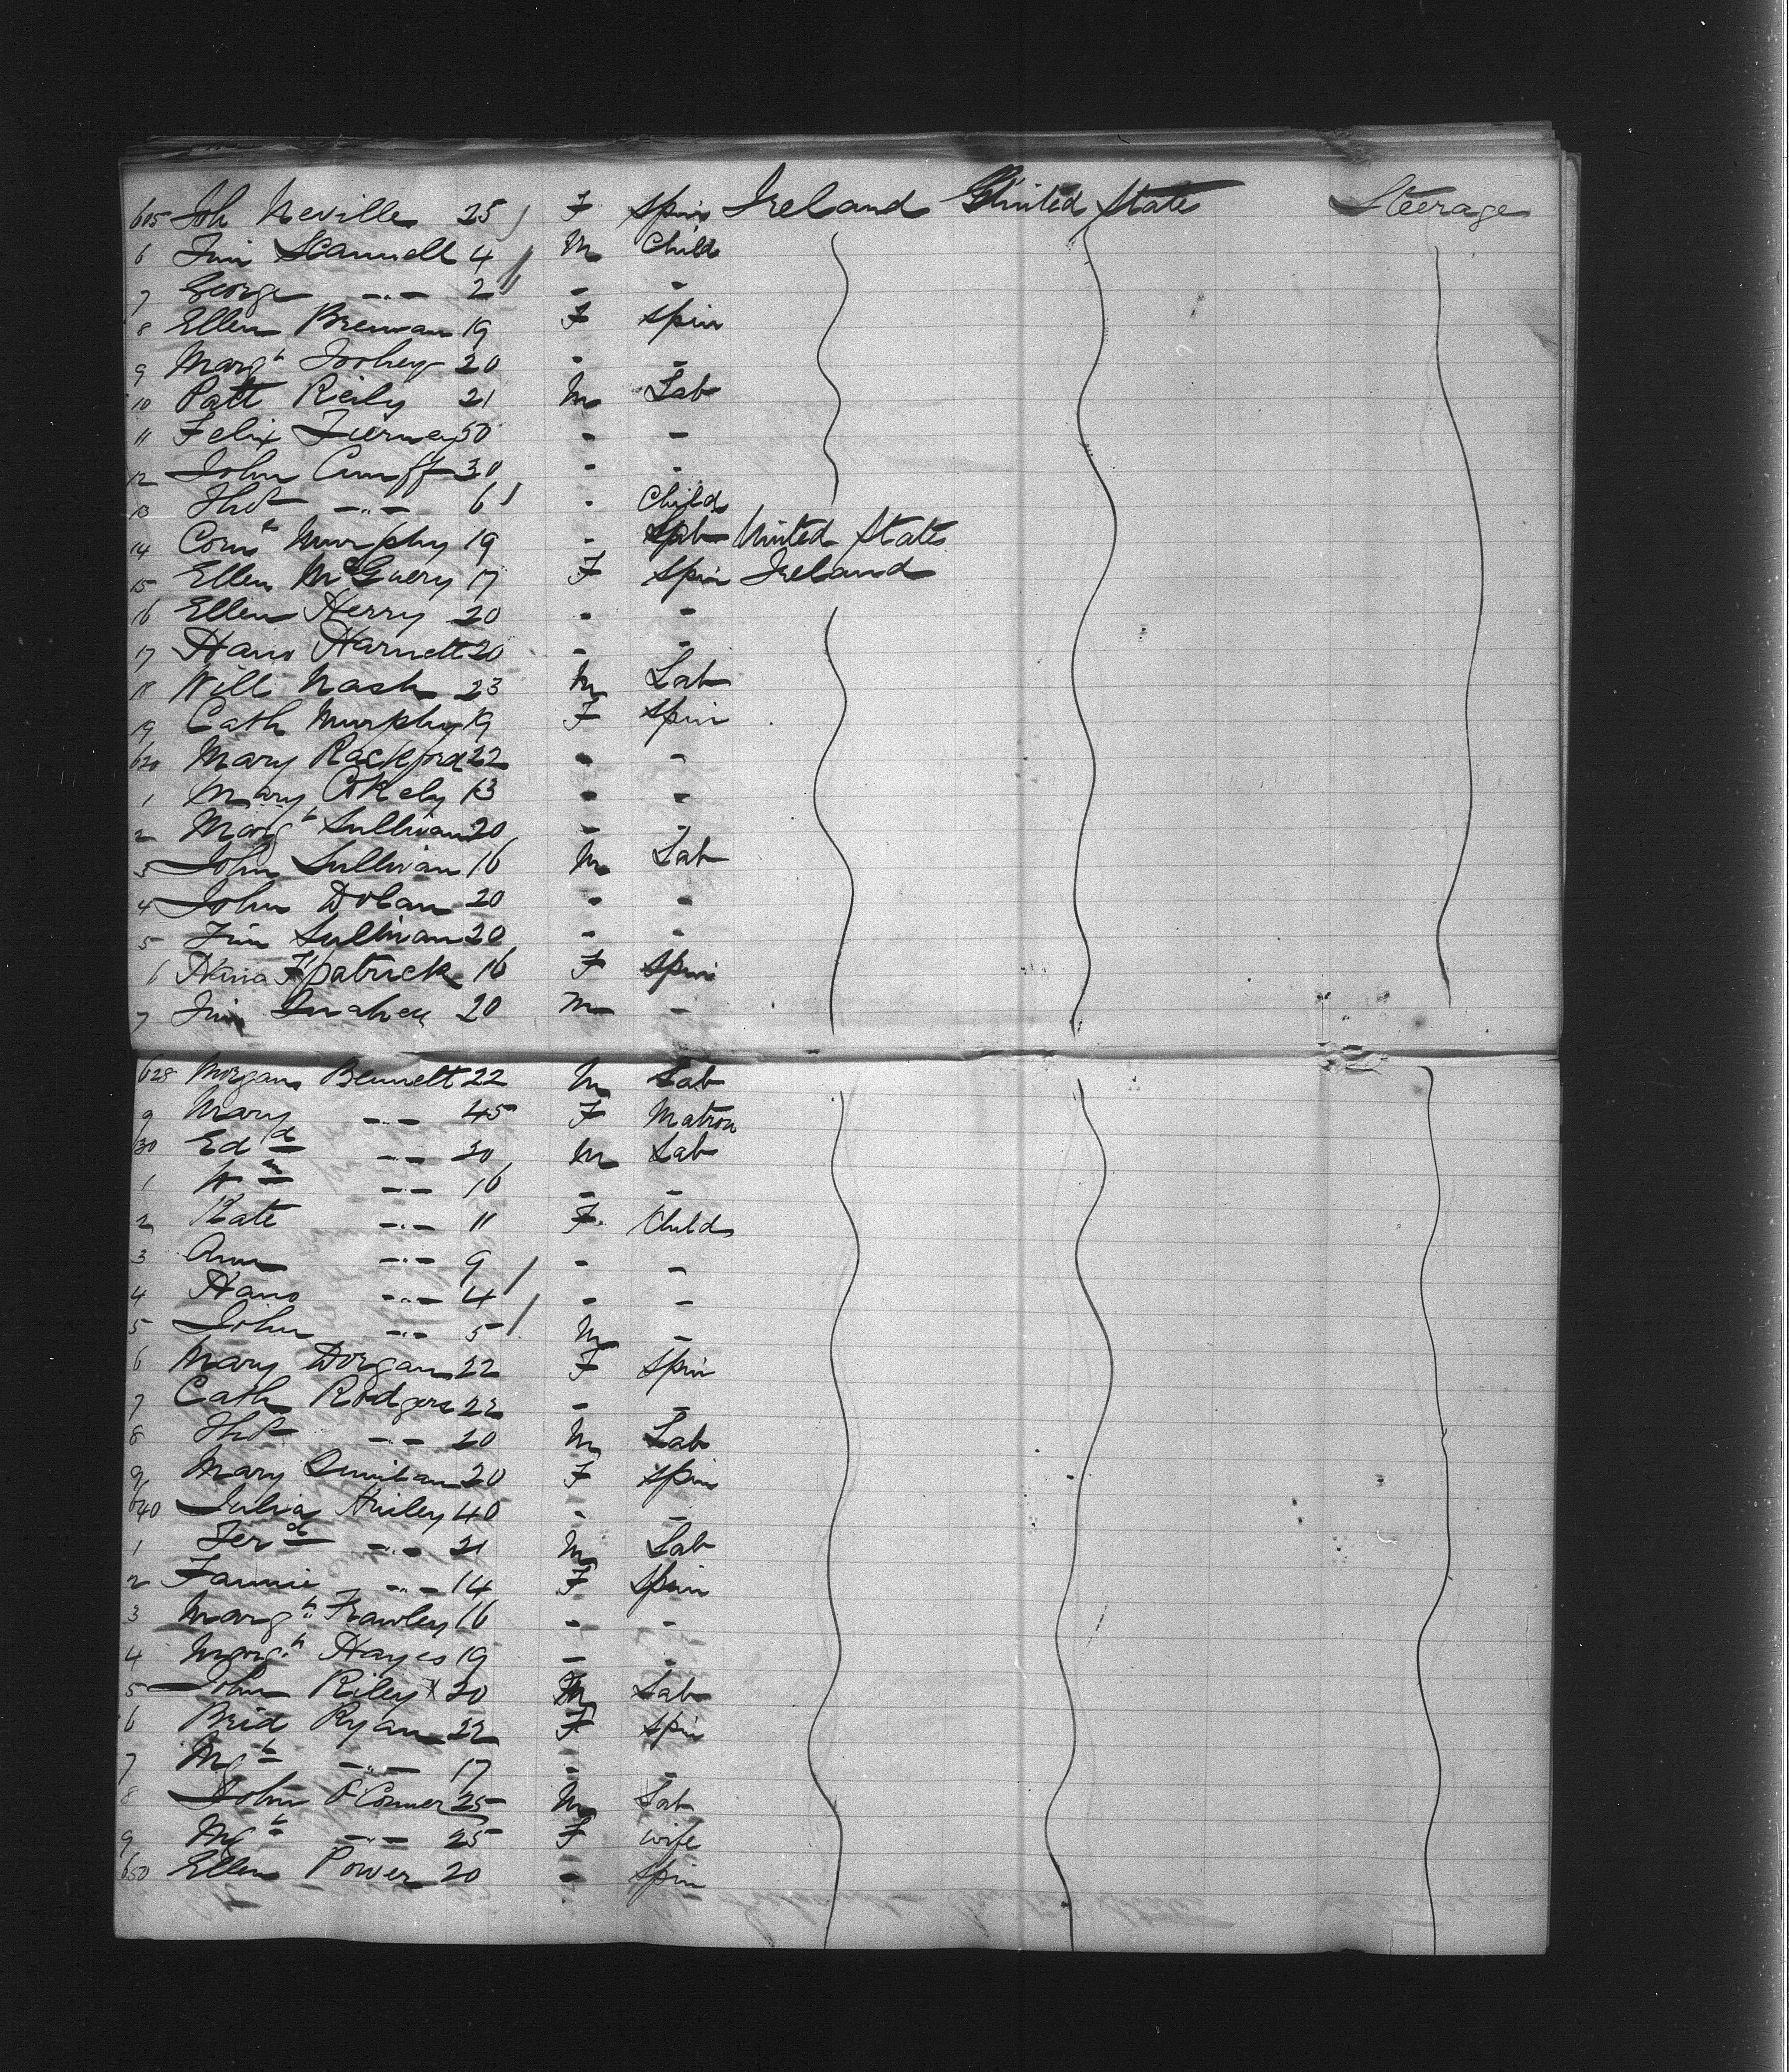 605 Joh Neville 25 F Spin Ireland United States Steerage
6 Jim Scannell 4 M Child
7 George -"- 2 - -
8 Ellen Brennan 19 F Spin
9 Marg^t Toohey 20 - -
10 Patt Reily 21 M Lab
11 Felix Tierney 50 - -
12 John Cuniff 30 - -
13 Tho^s -"- 6 - Child
14 Corn^s Murphy 19 - Lab United States
15 Ellen McGuery 17 F Spin Ireland
16 Ellen Herry 20 - -
17 Hano Harnett 20 - -
18 Will Nash 23 M Lab
19 Cath Murphy 19 F Spin
620 Mary Rackford 22 - -
1 Mary Cokely 13 - -
2 Marg^t Sullivan 20 - -
3 John Sullivan 16 M Lab
4 John Dolan 20 - -
5 Jim Sullivan 20 - -
6 Hana Fpatrick 16 F Spin
7 Jim 20 M -
628 Morgan Bennett 22 M Lab
9 Mary -"- 45 F Matron
630 Ed^d -"- 20 M Lab
1 W^m -"- 16 - -
2 Kate -"- 11 F Child
3 Ann -"- 9 - -
4 Hano -"- 4 - -
5 John -"- 5 M -
6 Mary Dorgan 22 F Spin
7 Cath Rodgers 22 - -
8 Tho^s -"- 20 M Lab
9 Mary Quinlan 20 F Spin
640 Julia Huley 40 - -
1 Jer^h -"- 21 M Lab
2 Fannie -"- 14 F Spin
3 Marg^t Frawley 16 - -
4 Marg^t Hayes 19 - -
5 John Riley x 20 M Lab
6 Brid Ryan 22 F Spin
7 Mg^t -"- 17 - -
8 John O'Conner 25 M Lab
9 Mg^t -"- 25 F wife
650 Ellen Power 20 - Spin